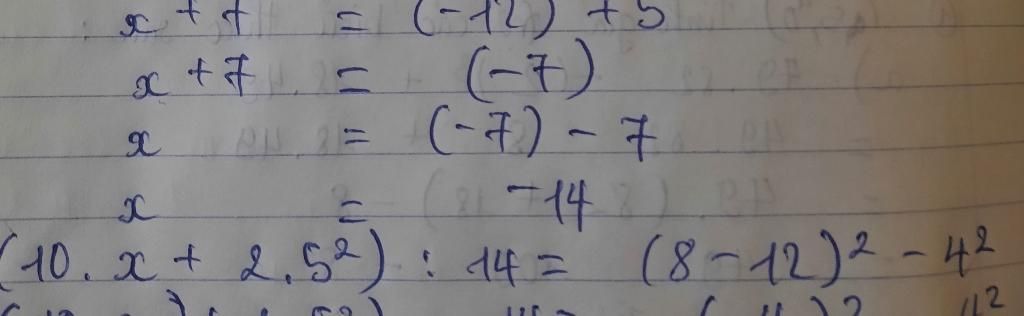 x + 7 = (-12) + 5
x + 7 = (-7)
x = (-7) - 7
x = -14
(10. x + 2.5²) : 14 = (8 - 12)² - 4²